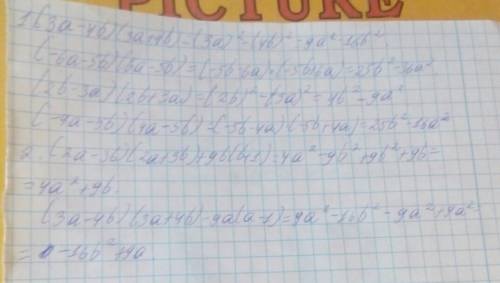 PICTURE
1. (3a-4b)(3a+4b)=(3a)²-(4b)²=9a²-16b²
(-6a-5b)(6a-5b)=(-5b-6a)·(-5b+6a)=25b²-36a²
(2b-3a)(2b+3a)=(2b)²-(3a)²=4b²-9a²
(-4a-5b)(4a-5b)=(-5b-4a)·(-5b+4a)=25b²-16a²
2. (2a-3b)(2a+3b)+9b(b+1)=4a²-9b²+9b²+9b=
=4a²+9b.
(3a-4b)(3a+4b)-9a(a-1)=9a²-16b²-9a²+9a=
=-16b²+9a.